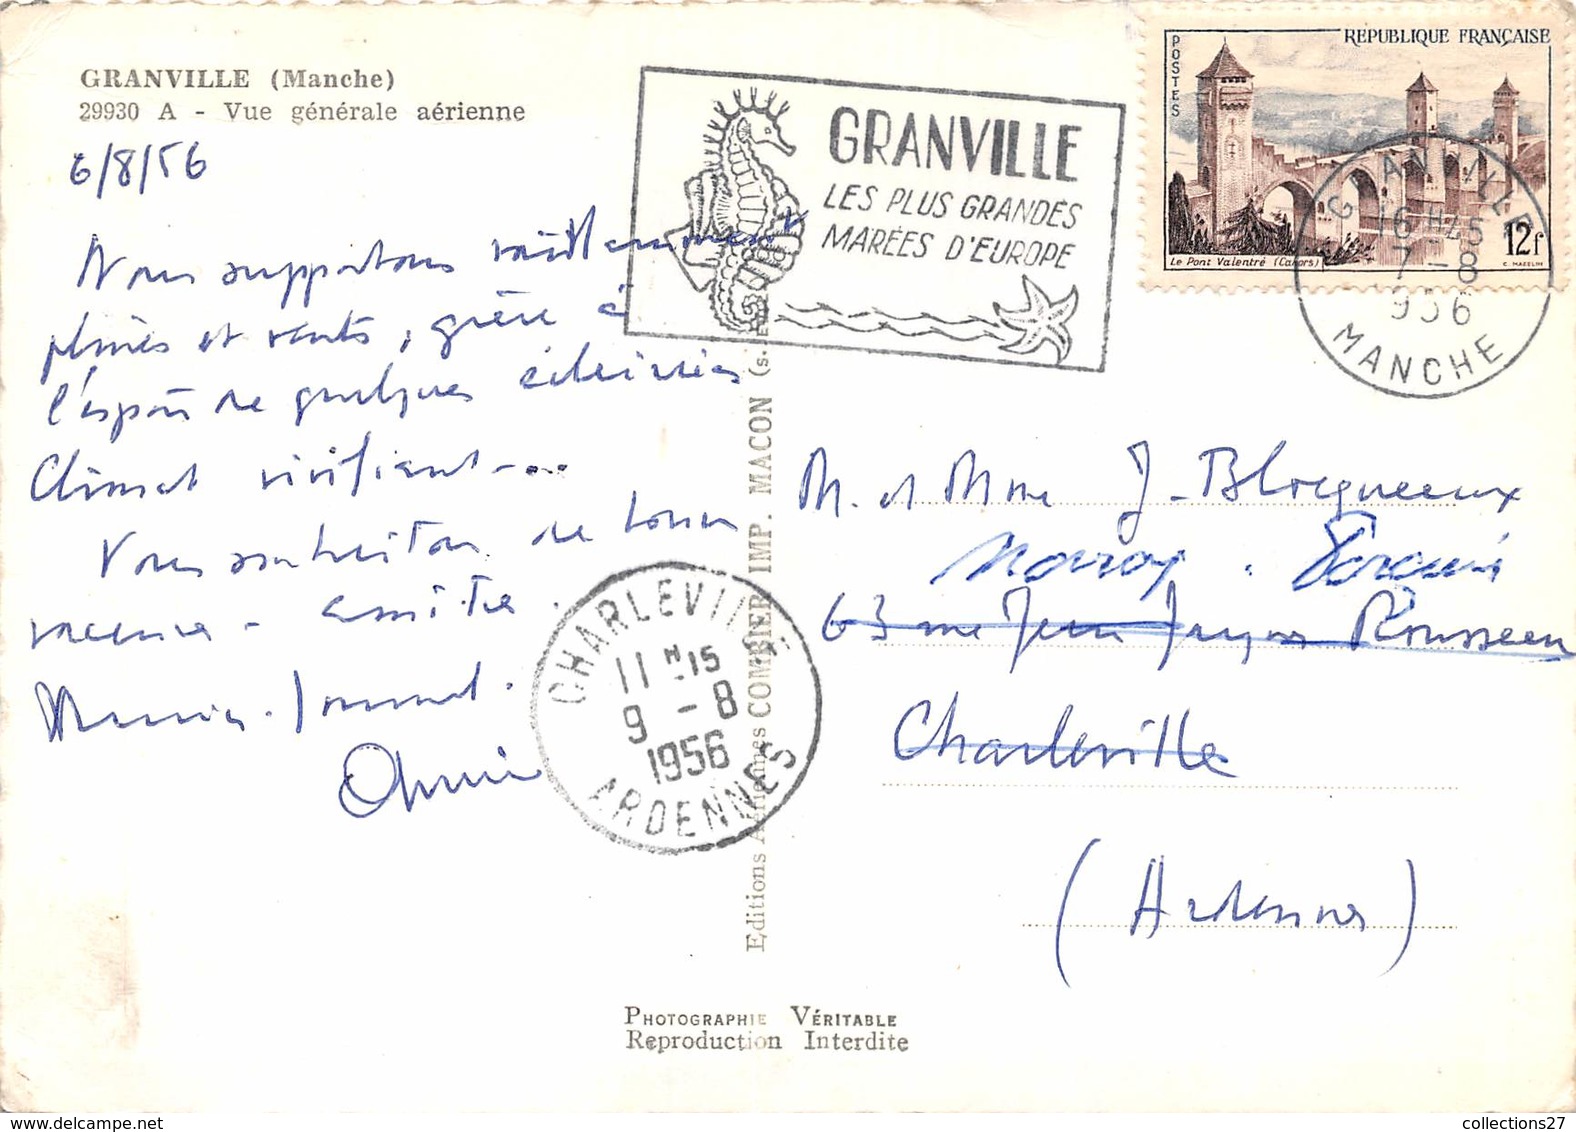 GRANVILLE (Manche)
29930 A - Vue générale aérienne
6/8/56
Nous supportons vaillamment
pluies et vents, grâce à
l'espoir de quelques éclaircies
Climat vivifiant....
Vous souhaitons de bonnes
vacances - amitiés.
GRANVILLE
LES PLUS GRANDES
MARÉES D'EUROPE
POSTES
REPUBLIQUE FRANÇAISE
Le Pont Valentré (Cahors)
12f
C. MAZELIN
GRANVILLE
16H45
7-8
1956
MANCHE
CHARLEVILLE
11H15
9-8
1956
ARDENNES
Editions Aériennes COMBIER IMP. MACON (s.
M. et Mme J. Blocqueaux
63 rue Jean Jacques Rousseau
Charleville
(Ardennes)
PHOTOGRAPHIE VÉRITABLE
Reproduction Interdite
collections27